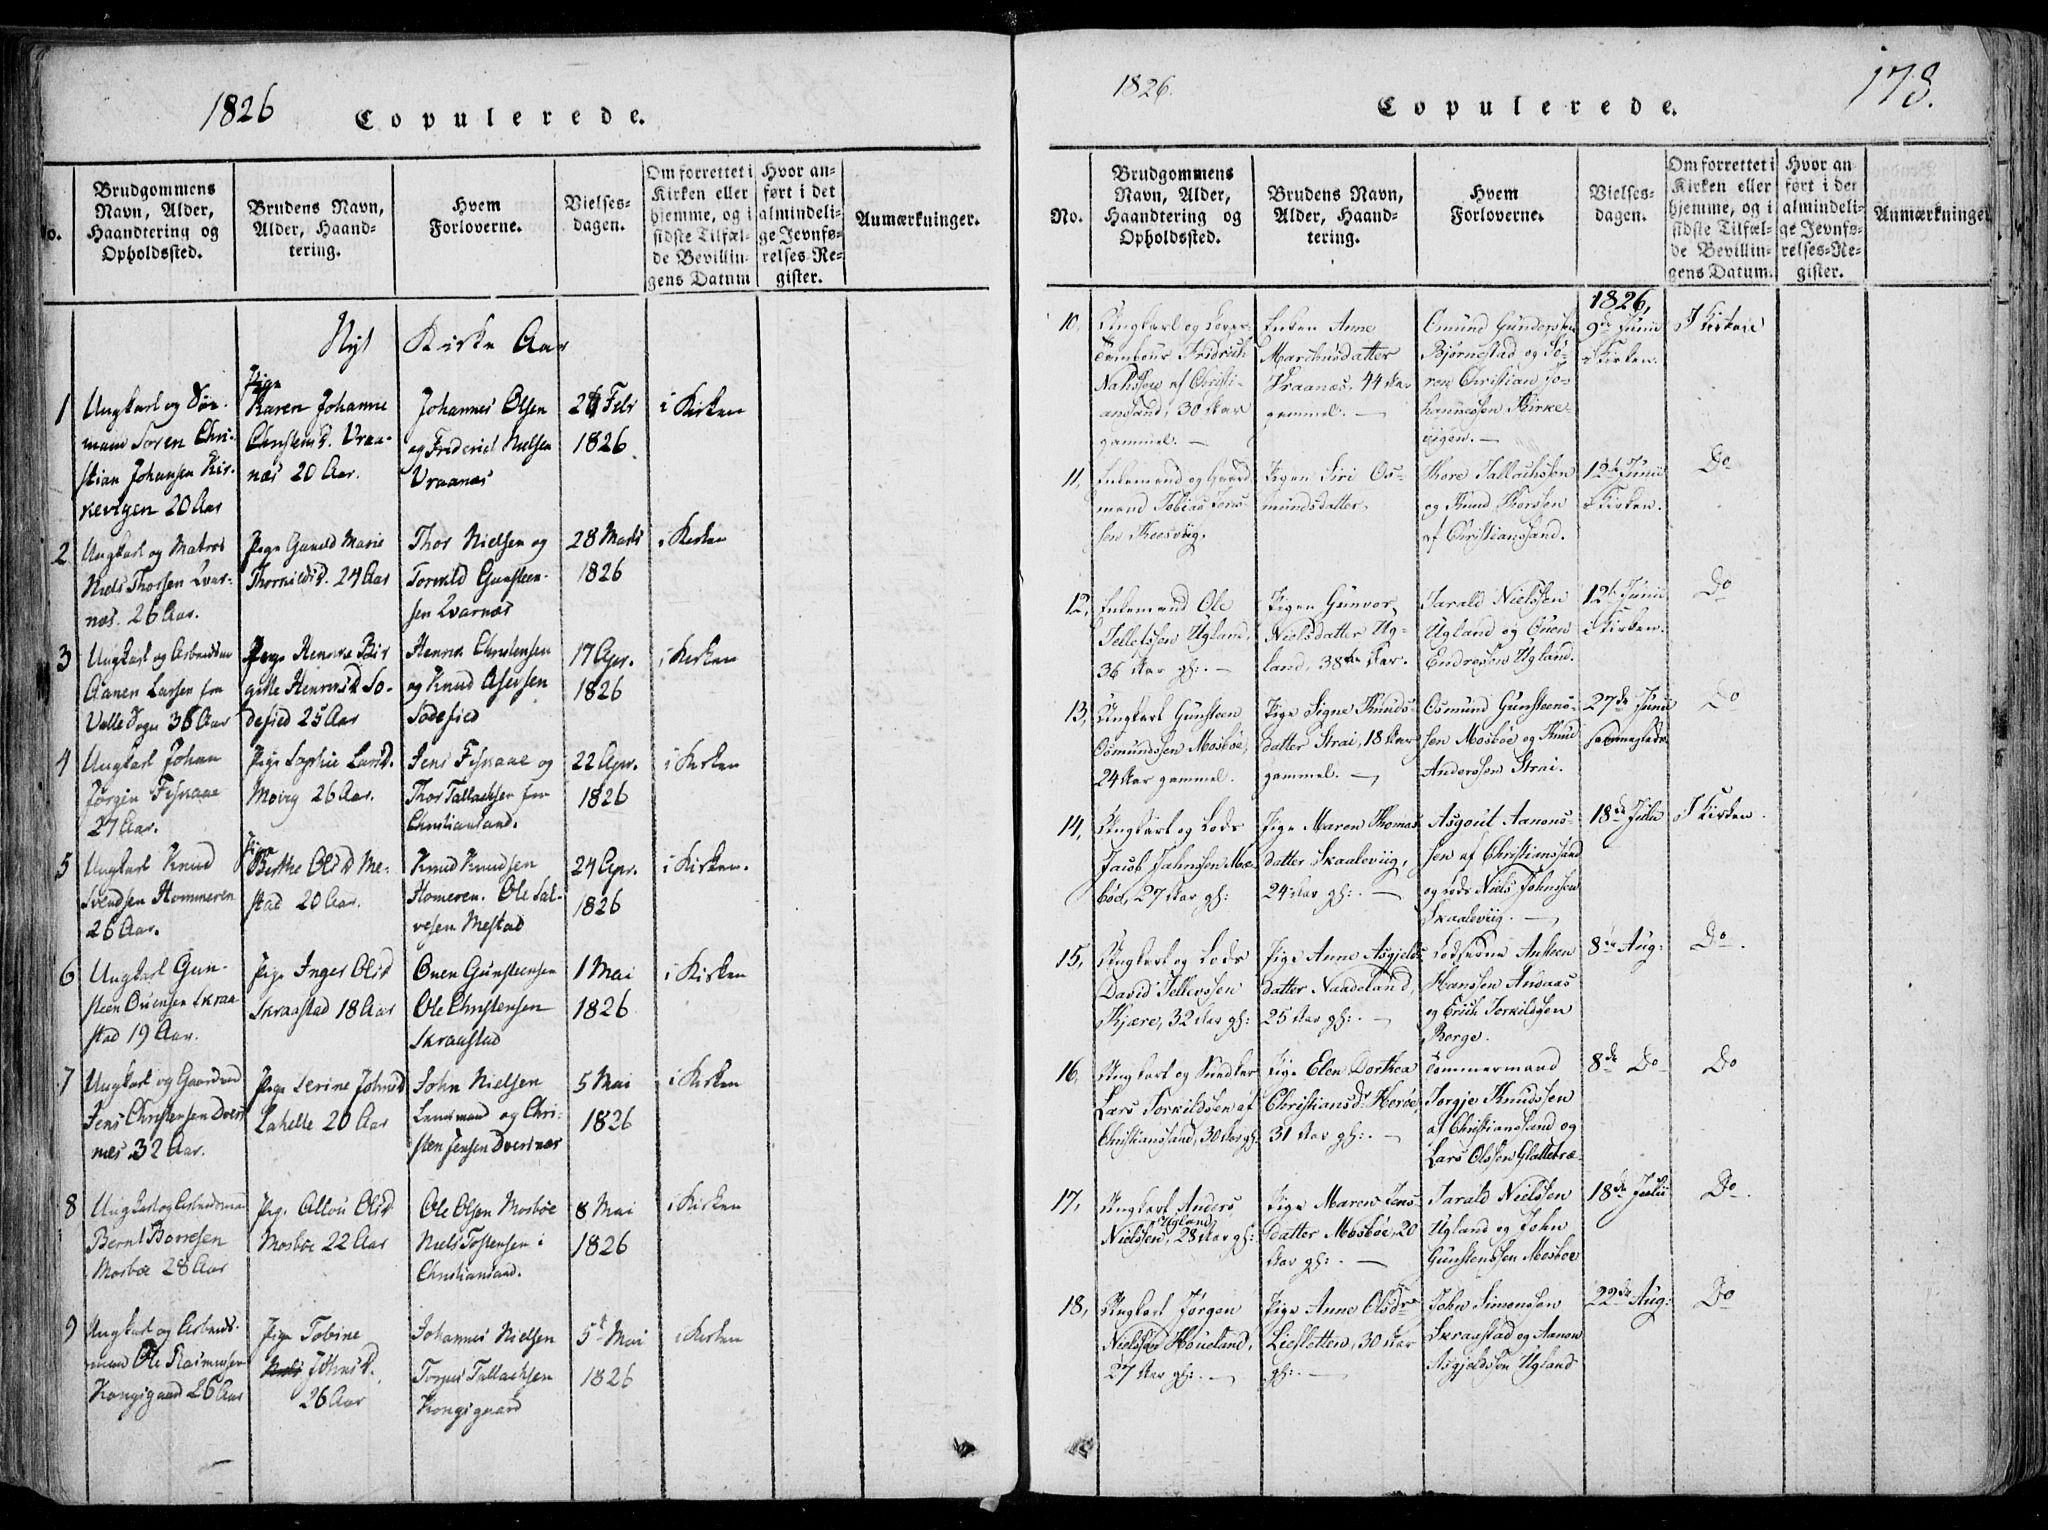 1826
Copulerede.
No.
Brudgommens
Navn, Alder,
Haandtering og
Opholdssted.
Brudens Navn,
Alder, Haand-
tering.
Hvem
Forloverne.
Vielses-
dagen.
Om forrettet i
Kirken eller
hjemme, og i
sidste Tilfæl-
de Bevillin-
gens Datum
Hvor an-
ført i det
almindeli-
ge Jevnfø-
relses-Re-
gister.
Anmærkninger.
Nyt Kirke Aar
1
Ungkarl og Søe-
mann Søren Chri-
stian Johansen Kir-
kevigen 20 Aar
Pige
Karen Johanne
Christensd. Vraa-
næs 20 Aar.
Johannes Olsen
og Friderich Nielsen
Vraanæs
Febr
1826
i Kirken
2
Ungkarl og Matros
Niels Thorsen Qvar-
næs. 26 Aar.
Pige Gunild Marie
Thorkildsd. 24 Aar
Thor Nielsen og
Torkild Gunsteen-
sen Qvarnæs
28 Marts
1826
i Kirken
3
Ungkarl og Arbeidsm
Aanen Larsen fra
Valle Sogn 36 Aar
Pige Henrike Bir
gitte Henriksd. So-
defied 25 Aar
Henrik Christensen
og Knud Asersen
Sodefied
17 Apr.
1826
i Kirken
4
Ungkarl Johan
Jørgen Fiskaae
27 Aar.
Pige Sophie Larsd.
Moivig 26 Aar.
Jens Fiskaae og
Thor Tallachsen fra
Christiansand.
22 Apr.
1826
i Kirken
5
Ungkarl Knud
Svendsen Hommeren
26 Aar.
Pige
Berthe Olsd. Me-
stad 20 Aar.
Knud Knudsen
Homeren. Ole Sal-
vesen Mestad
24 Apr.
1826
i Kirken.
6
Ungkarl Gun-
steen Ouensen Skraa
stad 19 Aar.
Pige Inger Olsd
Skraastad 18 Aar
Ouen Gunsteensen
Ole Christensen
Skraastad
1 Mai
1826
i Kirken
7
Ungkarl og Gaardmd
Jens Christensen Dver
næs 32 Aar.
Pige Serine Johnsd
Lahelle 20 Aar
John Nielsen
Lensmand og Chri-
sten Jensen Dversnæs
5 Mai
1826
i Kirken
8
Ungkarl og Arbeidsma
Bernt Børresen
Mosbøe 28 Aar
Pige Allou Olsd
Mosbøe 22 Aar
Ole Olsen Mosbøe
Niels Tostensen i
Christiansand.
8 Mai
1826
i Kirken
9
Ungkarl og Arbeids-
mann Ole Rasmussen
Kongsgaard 26 Aar
Pige Tobine
Niels Johnsd.
26 Aar
Johannes Nielsen
Torjus Tallachsen
Kongsgaard
5t Mai
1826
i Kirken
1826.
Copulerede.
178.
No.
Brudgommens
Navn, Alder,
Haandtering og
Opholdssted.
Brudens Navn,
Alder, Haand-
tering.
Hvem
Forloverne.
Vielses-
dagen.
Om forrettet i
Kirken eller
hjemme, og i
sidste Tilfæl-
de Bevillin-
gens Datum.
Hvor an-
ført i det
almindeli-
ge Jevnfø-
relses-Re-
gister.
Anmærkninger
1826,
10,
Ungkarl og
Tambour Fridrich
af Christi-
ansand, 30 Aar
gammel. —
Enken Anne
Marcusdatter
Vraanæs, 44 Aar
gammel. —
Omund Gundersen
Bjørnestad og Sö-
ren Christian Jo-
hannessen Kirke-
viigen. —
9de Junii
i Kirken.
I Kirken
11,
Enkemand og Gaard
mand Tobias Jens-
sen Keesviig.
Pigen Siri Os-
mundsdatter,
Thore Tallachsen
og Knud Thorsen
af Christianssand.
12te Junii
i Kirken.
Do
12,
Enkemand Ole
Tellefsen Ugland,
36 Aar gl: —
Pigen Gunvor
Nielsdatter Ug-
land, 38te Aar.
Tarald Nielssen
Ugland og Ouen
Endresen Ugland.
12te Junii
i Kirken.
Do
13,
Ungkarl Gunsteen
Osmundssen Mosböe,
24 Aar gammel.
Pige Signe Knuds-
datter Strai, 18 Aar
gammel. —
Osmund Gunsteens-
sen Mosböe og Knud
Anderssen Strai.
27de Junii
sammeteds.
Do
14,
Ungkarl og Lods
Jacob Jahnsen Mæ-
böe, 27 Aar gl:
Pige Maren Thomas
datter Skaaleviig,
24 Aar gl: —
Asgout Aanons-
sen af Christianssand
og Lods Niels Johnssen
Skaaleviig. —
18de Julii
I Kirken.
15,
Ungkarl og Lods
David Tellevssen
Kjære, 32 Aar gl:
Pige Anne Asgjelds
datter Naadeland,
25 Aar gl: —
Lodserne Ansteen
Hanssen Andaas
og Erich Torkildsen
Borge.
8de Aug:
Do.
16,
Ungkarl og Snedker
Lars Torkildsen af
Christianssand, 30 Aar gl:
Pige Elen Dorthea
Christiansd: Heröe,
31 Aar gl: —
Tömmermand
Torgje Knudssen
af Christianssand og
Lars Olssen Glattetræ-
8de Do
Do
17,
Ungkarl Anders
Nielssen Ugland, 28 Aar gl:
Pige Maren Jens-
datter Mosböe, 20
Aar gl: —
Tarald Nielssen
Ugland og John
Gunstenssen Mosboe
18de Julii
Do.
18,
Ungkarl Jörgen
Nielssen Houeland,
27 Aar gl: —
Pige Anne Olsdr
Liesletten, 30 Aar
gl: —
John Simonssen
Skraastad og Aanon
Asgjeldssen Ugland
22de Aug:
Do